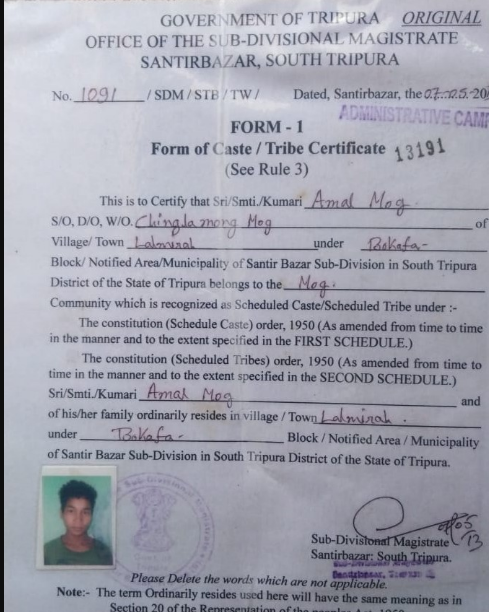 GOVERNMENT OF TRIPURA ORIGINAL
OFFICE OF THE SUB-DIVISIONAL MAGISTRATE
SANTIRBAZAR, SOUTH TRIPURA
No. 1091 / SDM / STB / TW / Dated, Santirbazar, the 07.05.20
ADMINISTRATIVE CAMP
FORM - 1
Form of Caste / Tribe Certificate 13191
(See Rule 3)
This is to Certify that Sri/Smti./Kumari Amal Mog
S/O, D/O, W/O. Chingla mong Mog of
Village/ Town under Bokafa-
Block/ Notified Area/Municipality of Santir Bazar Sub-Division in South Tripura
District of the State of Tripura belongs to the Mog.
Community which is recognized as Scheduled Caste/Scheduled Tribe under :-
The constitution (Schedule Caste) order, 1950 (As amended from time to time
in the manner and to the extent specified in the FIRST SCHEDULE.)
The constitution (Scheduled Tribes) order, 1950 (As amended from time to
time in the manner and to the extent specified in the SECOND SCHEDULE.)
Sri/Smti./Kumari Amal Mog and
of his/her family ordinarily resides in village / Town
under Bokafa- Block / Notified Area / Municipality
of Santir Bazar Sub-Division in South Tripura District of the State of Tripura.
Sub-Divisional Magistrate
Santirbazar: South Tripura.
Please Delete the words which are not applicable.
Note:- The term Ordinarily resides used here will have the same meaning as in
Section 20 of the Representation of the